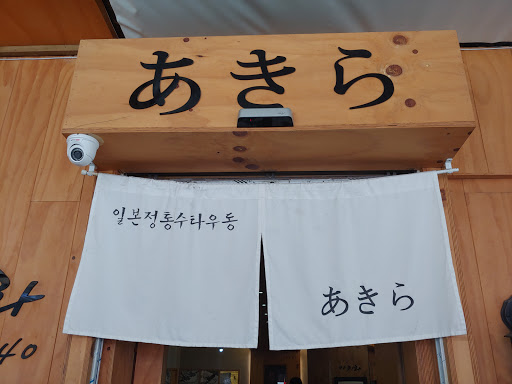 あきら
일본정통수타우동
あきら
40